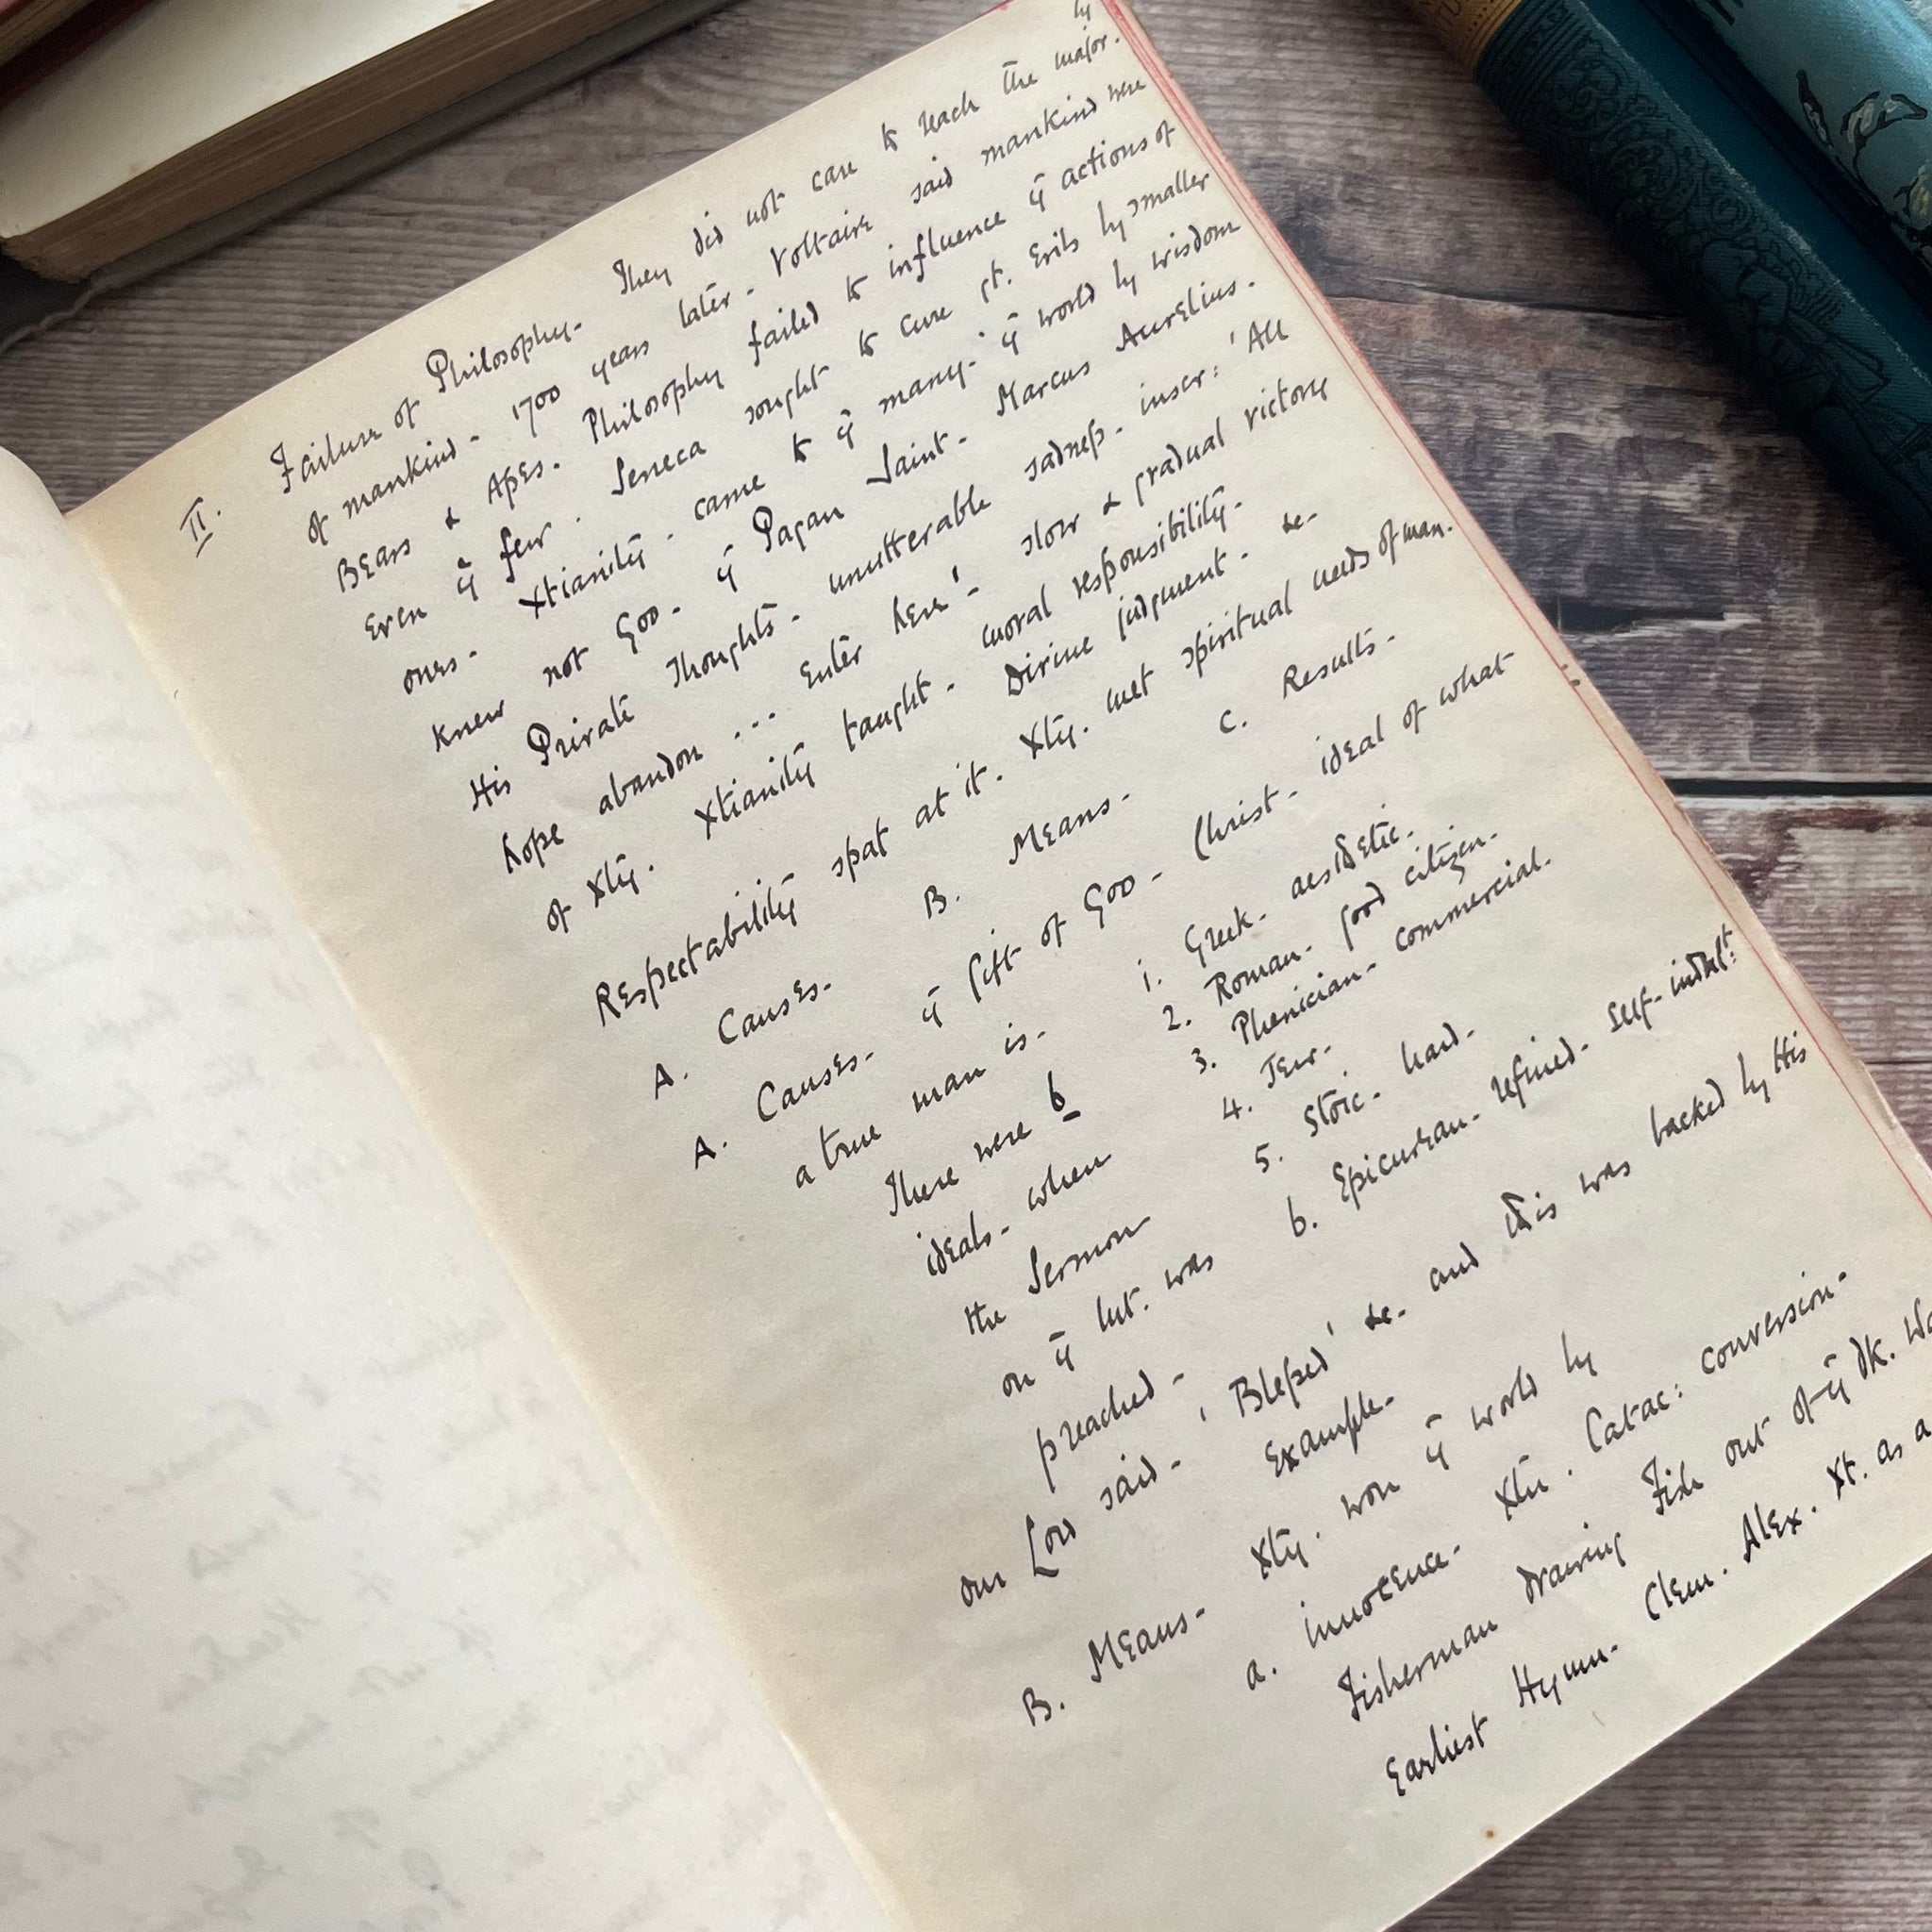 II. Failure of Philosophy. They did not care to teach the major.ty
of mankind - 1700 years later - Voltaire said mankind were
Bears & Apes. Philosophy failed to influence ye actions of
Even ye few. Seneca sought to cure gt. Evils by smaller
ones. Xtianity - came to ye many. ye world by wisdom
knew not God - ye Pagan Saint - Marcus Aurelius.
His Private Thoughts - unutterable sadness - inscr: 'All
hope abandon ... Enter here' - slow & gradual victory
of Xty. Xtianity taught - moral responsibility.
Divine judgment - &c-
Respectability spat at it. Xty. met spiritual needs of man.
A. Causes. B. Means. C. Results.
A. Causes. ye gift of God - Christ - ideal of what
a true man is.
There were 6
ideals - when
the Sermon
on ye Mt. was
preached -
1. Greek - aesthetic.
2. Roman - good citizen.
3. Phenician - commercial.
4. Jew.
5. Stoic - hard.
6. Epicurean - refined - self-indulgt:
Our Lord said - 'Blessed' &c- and this was backed by His
Example.
B. Means - Xty. won ye world by
a. innocence - Xtn. Catac: conversion.
Fisherman drawing Fish out of ye dk.
Earliest Hymn - Clem. Alex. Xt. as a